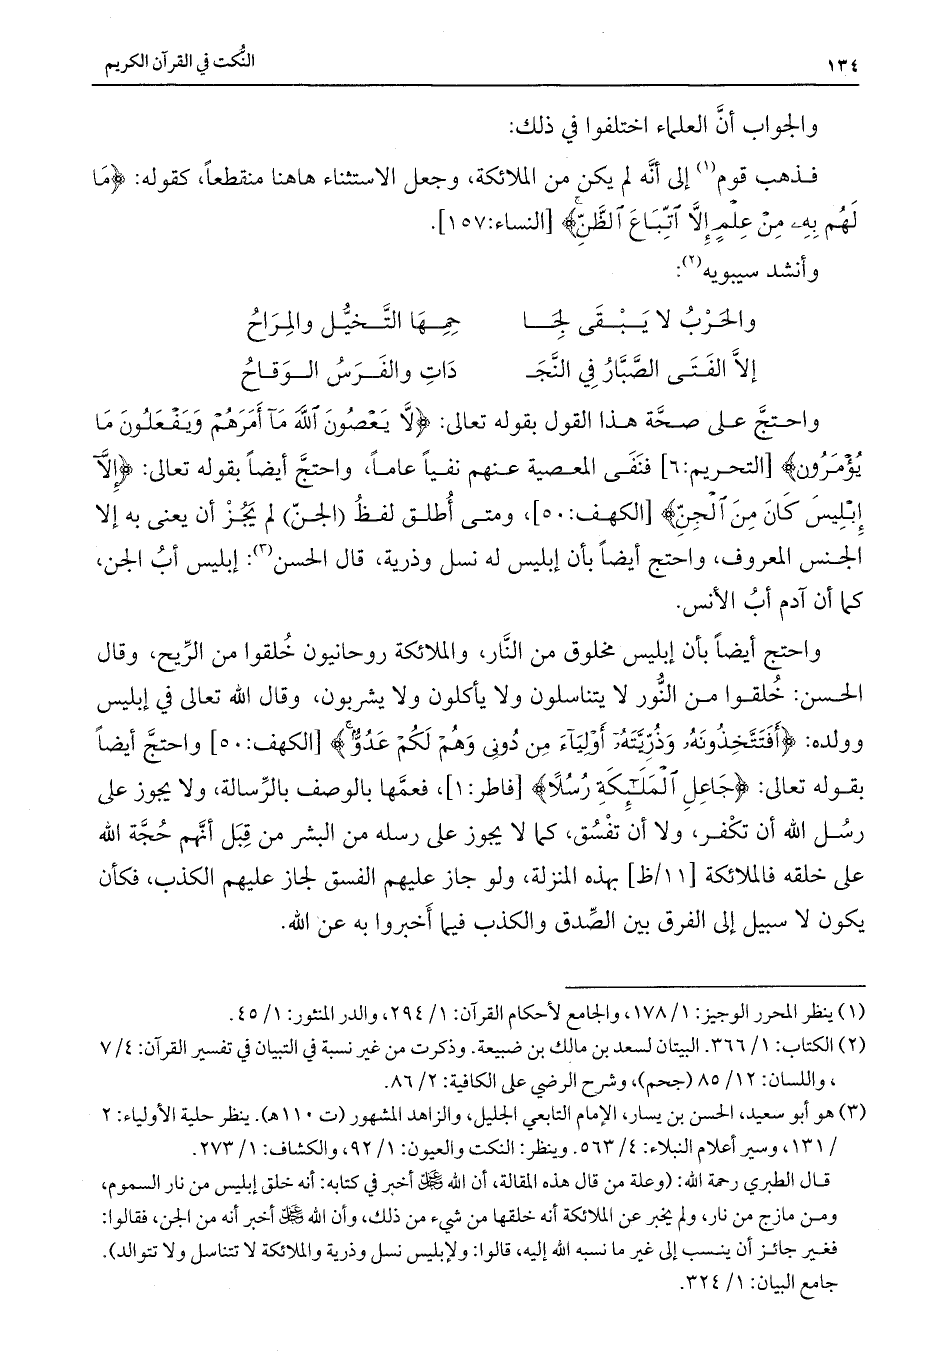 ١٣٤ النُّكت في القرآن الكريم
والجواب أنَّ العلماء اختلفوا في ذلك:
فـذهب قوم(١) إلى أنَّه لم يكن من الملائكة، وجعل الاستثناء هاهنا منقطعاً، كقوله: ﴿مَا
لَهُم بِهِۦ مِنْ عِلْمٍ إِلَّا ٱتِّبَاعَ ٱلظَّنِّ﴾ [النساء:١٥٧].
وأنشد سيبويه(٢):
والحَرْبُ لا يَـبْـقَى لِجَـا حِمِـهَا التَّـخَيُّـل والمِـرَاحُ
إلاَّ الفَتَـى الصَّبَّارُ فِي النَّجَـ دَاتِ والفَـرَسُ الـوَقـاحُ
واحتجَّ على صحَّة هذا القول بقوله تعالى: ﴿لَّا يَعْصُونَ ٱللَّهَ مَآ أَمَرَهُمْ وَيَفْعَلُونَ مَا
يُؤْمَرُونَ﴾ [التحريم:٦] فنَفَى المعصية عنهم نفياً عاماً، واحتج أيضاً بقوله تعالى: ﴿إِلَّآ
إِبْلِيسَ كَانَ مِنَ ٱلْجِنِّ﴾ [الكهف:٥٠]، ومتى أُطلق لفظ (الجنّ) لم يَجُزْ أن يعنى به إلا
الجنس المعروف، واحتج أيضاً بأن إبليس له نسل وذرية، قال الحسن(٣): إبليس أبُ الجن،
كما أن آدم أبُ الأنس.
واحتج أيضاً بأن إبليس مخلوق من النَّار، والملائكة روحانيون خُلقوا من الرِّيح، وقال
الحسن: خُلقوا من النُّور لا يتناسلون ولا يأكلون ولا يشربون، وقال الله تعالى في إبليس
وولده: ﴿أَفَتَتَّخِذُونَهُۥ وَذُرِّيَّتَهُۥٓ أَوْلِيَآءَ مِن دُونِى وَهُمْ لَكُمْ عَدُوٌّ﴾ [الكهف:٥٠] واحتجَّ أيضاً
بقوله تعالى: ﴿جَاعِلِ ٱلْمَلَٰٓئِكَةِ رُسُلًا﴾ [فاطر:١]، فعمَّها بالوصف بالرِّسالة، ولا يجوز على
رسُل الله أن تكْفر، ولا أن تفْسُق، كما لا يجوز على رسله من البشر من قِبَل أنَّهم حُجَّة الله
على خلقه فالملائكة [١١/ظ] بهذه المنزلة، ولو جاز عليهم الفسق لجاز عليهم الكذب، فكأن
يكون لا سبيل إلى الفرق بين الصِّدق والكذب فيما أَخبروا به عن الله.
(١) ينظر المحرر الوجيز: ١/ ١٧٨، والجامع لأحكام القرآن: ١/ ٢٩٤، والدر المنثور: ١/ ٤٥.
(٢) الكتاب: ١/ ٣٦٦. البيتان لسعد بن مالك بن ضبيعة. وذكرت من غير نسبة في التبيان في تفسير القرآن: ٤/ ٧
، واللسان: ١٢/ ٨٥ (جحم)، وشرح الرضي على الكافية: ٢/ ٨٦.
(٣) هو أبو سعيد، الحسن بن يسار، الإمام التابعي الجليل، والزاهد المشهور (ت ١١٠هـ). ينظر حلية الأولياء: ٢
/ ١٣١، وسير أعلام النبلاء: ٤/ ٥٦٣. وينظر: النكت والعيون: ١/ ٩٢، والكشاف: ١/ ٢٧٣.
قال الطبري رحمة الله: (وعلة من قال هذه المقالة، أن الله ﷻ أخبر في كتابه: أنه خلق إبليس من نار السموم،
ومن مازج من نار، ولم يخبر عن الملائكة أنه خلقها من شيء من ذلك، وأن الله ﷻ أخبر أنه من الجن، فقالوا:
فغير جائز أن ينسب إلى غير ما نسبه الله إليه، قالوا: ولإبليس نسل وذرية والملائكة لا تتناسل ولا تتوالد).
جامع البيان: ١/ ٣٢٤.